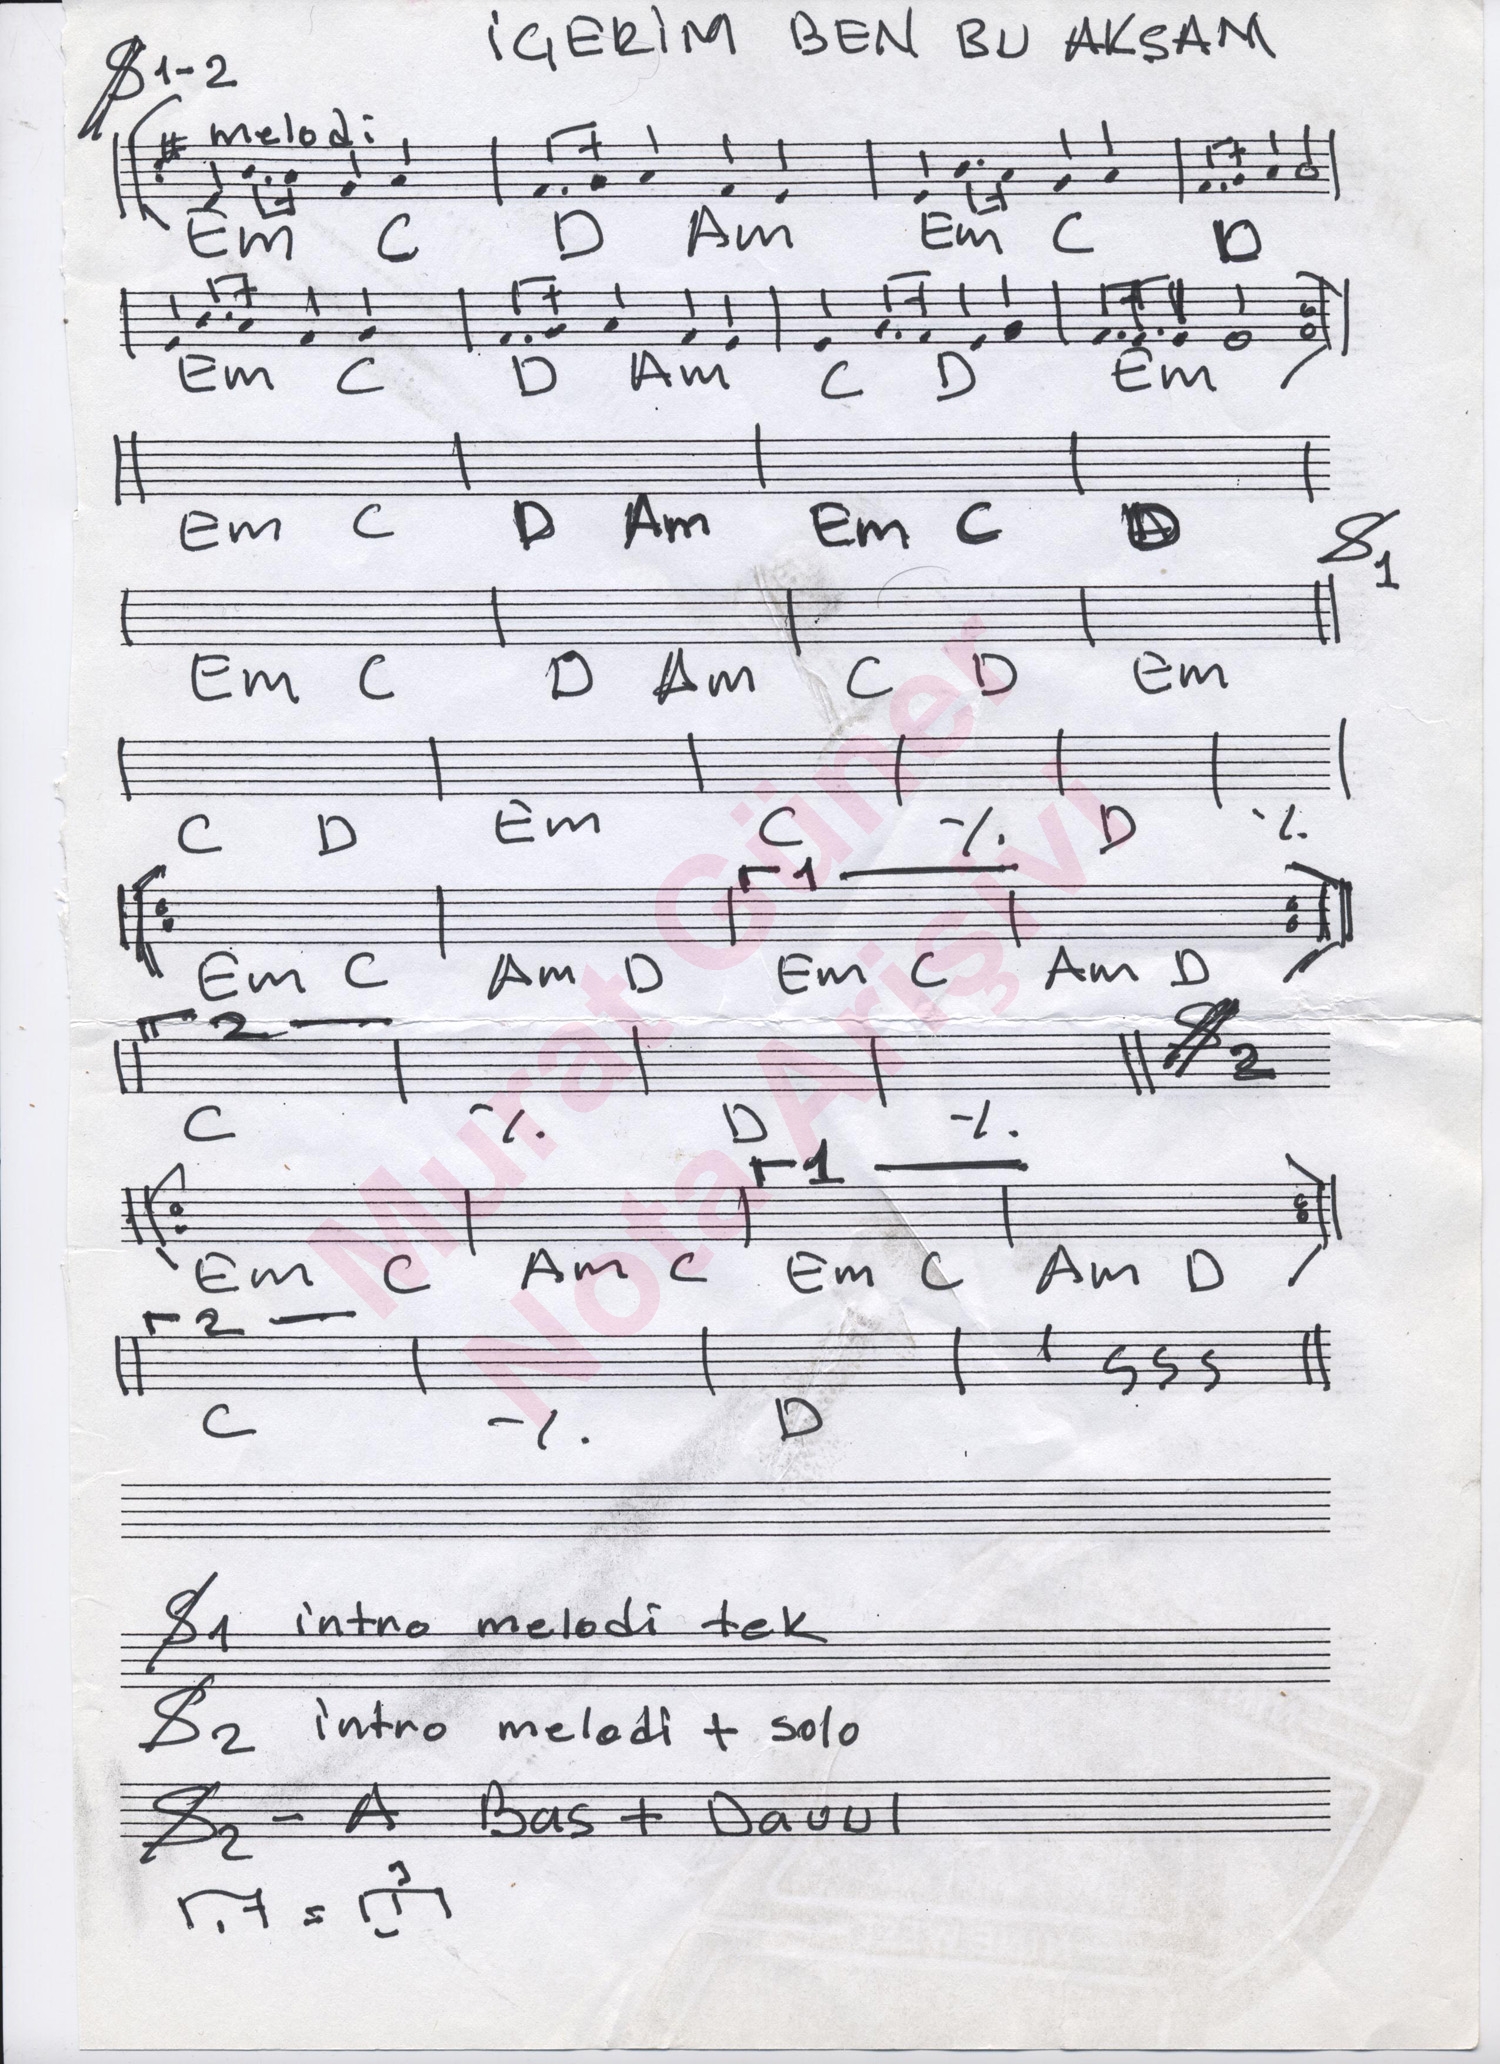 İÇERİM BEN BU AKŞAM
1-2
melodi
Em C D Am Em C D
Em C D Am C D Em
Em C D Am Em C D
1
Em C D Am C D Em
C D Em C -/. D -/.
1
Em C Am D Em C Am D
2
2
C -/. D -/.
1
Em C Am C Em C Am D
2
C -/. D
1 intro melodi tek
2 intro melodi + solo
2 - A Bas + Davul
3
=
Murat Güner
Nota Arişivi